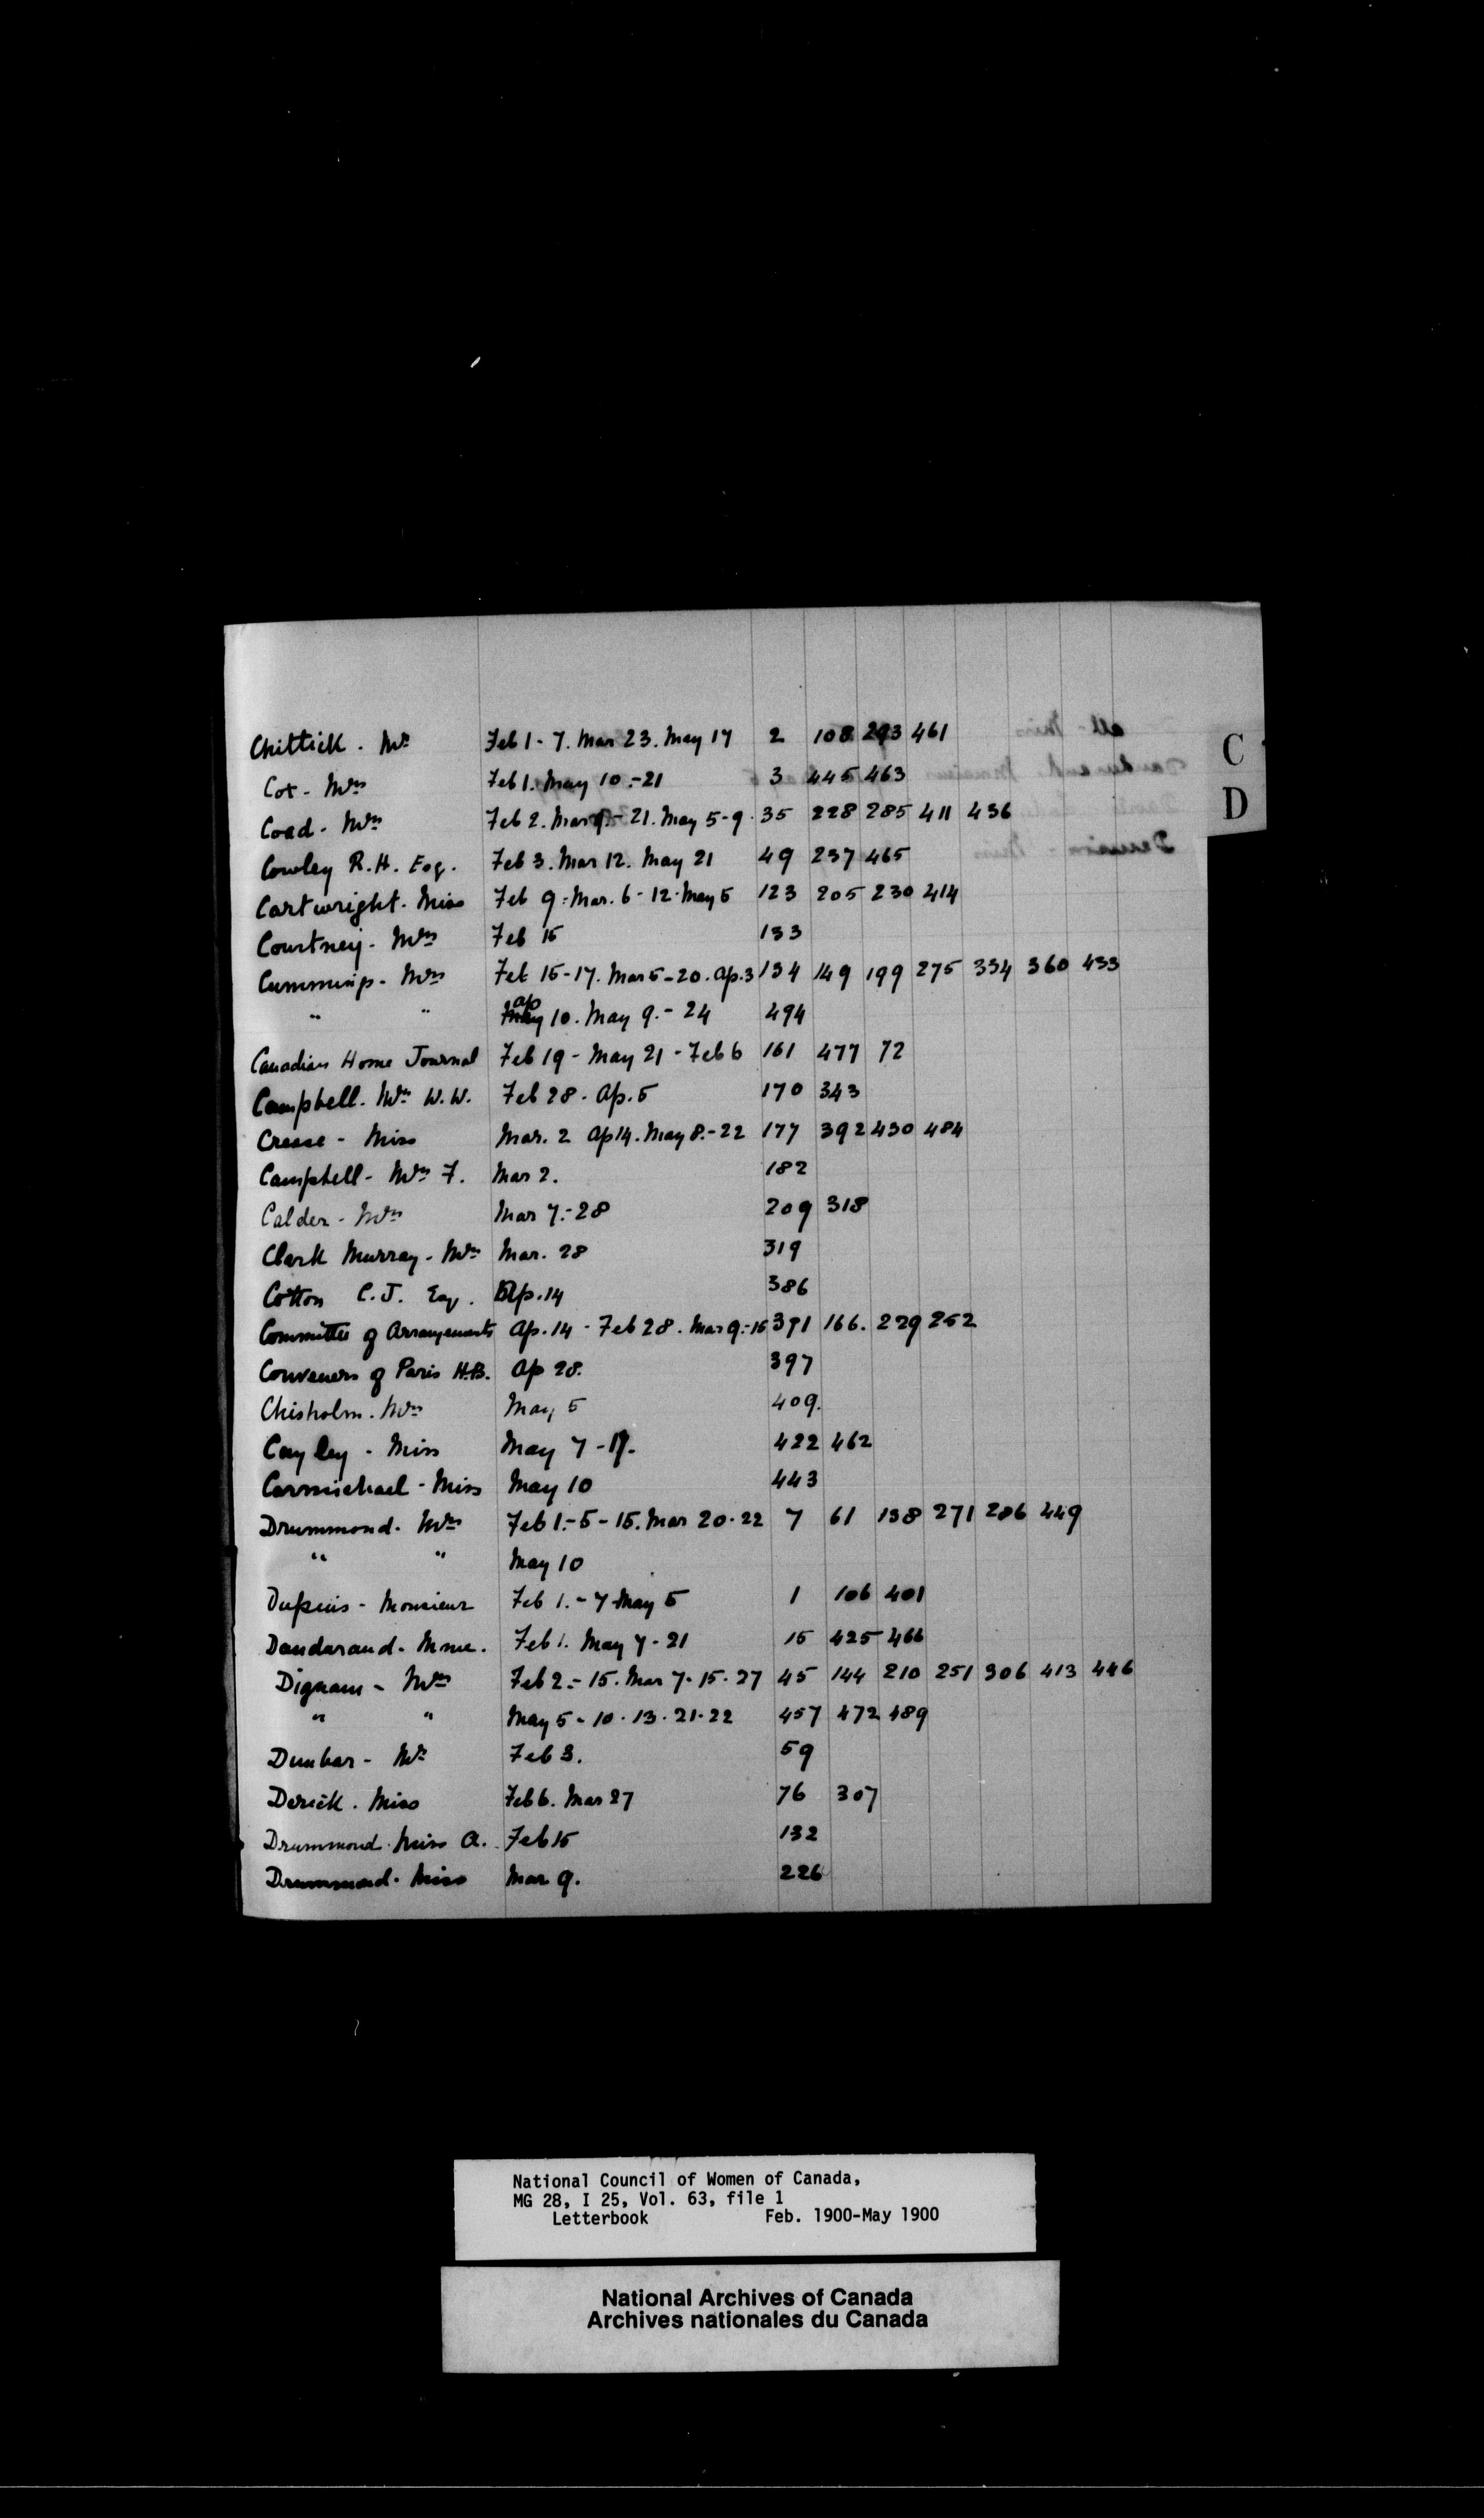 Chittick - Mr Feb 1 - 7. Mar 23. May 17 2 108 293 461
Cox - Mrs Feb 1. May 10 - 21 3 445 463
Coad - Mrs Feb 2. Mar 9 - 21. May 5 - 9. 35 228 285 411 436
Cowley R.H. Esq. Feb 3. Mar 12. May 21 49 237 465
Cartwright. Miss Feb 9 - Mar. 6 - 12. May 5 123 205 230 414
Courtney - Mrs Feb 15 133
Cummings - Mrs Feb 15 - 17. Mar 5 - 20. Ap. 3 134 149 199 275 334 360 433
" " Ap 10. May 9. - 24 494
Canadian Home Journal Feb 19 - May 21 - Feb 6 161 477 72
Campbell. Mrs W.W. Feb 28 - Ap. 5 170 343
Crease - Miss Mar. 2 Ap 14. May 8. - 22 177 392 430 484
Campbell - Mrs F. Mar 2. 182
Calder - Mrs Mar 7. - 28 209 318
Clark Murray - Mrs Mar. 28 319
Cotton C.J. Esq. Ap. 14 386
Committee of Arrangements Ap. 14 - Feb 28. Mar 9. - 15 391 166. 229 252
Conveners of Paris H.B. Ap 28. 397
Chisholm. Mrs May 5 409.
Cayley - Miss May 7 - 17. 422 462
Carmichael - Miss May 10 443
Drummond - Mrs Feb 1. - 5 - 15. Mar 20 - 22 7 61 138 271 286 449
" " May 10
Dupuis - Monsieur Feb 1. - 7 May 5 1 106 401
Dandarand - Mme. Feb 1. May 7 - 21 15 425 466
Dignam - Mrs Feb 2. - 15. Mar 7 - 15 - 27 45 144 210 251 306 413 446
" " May 5 - 10 - 13 - 21 - 22 457 472 489
Dunbar - Mr Feb 3. 59
Derick. Miss Feb 6. Mar 27 76 307
Drummond. Miss A. Feb 15 132
Drummond - Miss Mar 9. 226
C
D
National Council of Women of Canada,
MG 28, I 25, Vol. 63, file 1
Letterbook Feb. 1900-May 1900
National Archives of Canada
Archives nationales du Canada